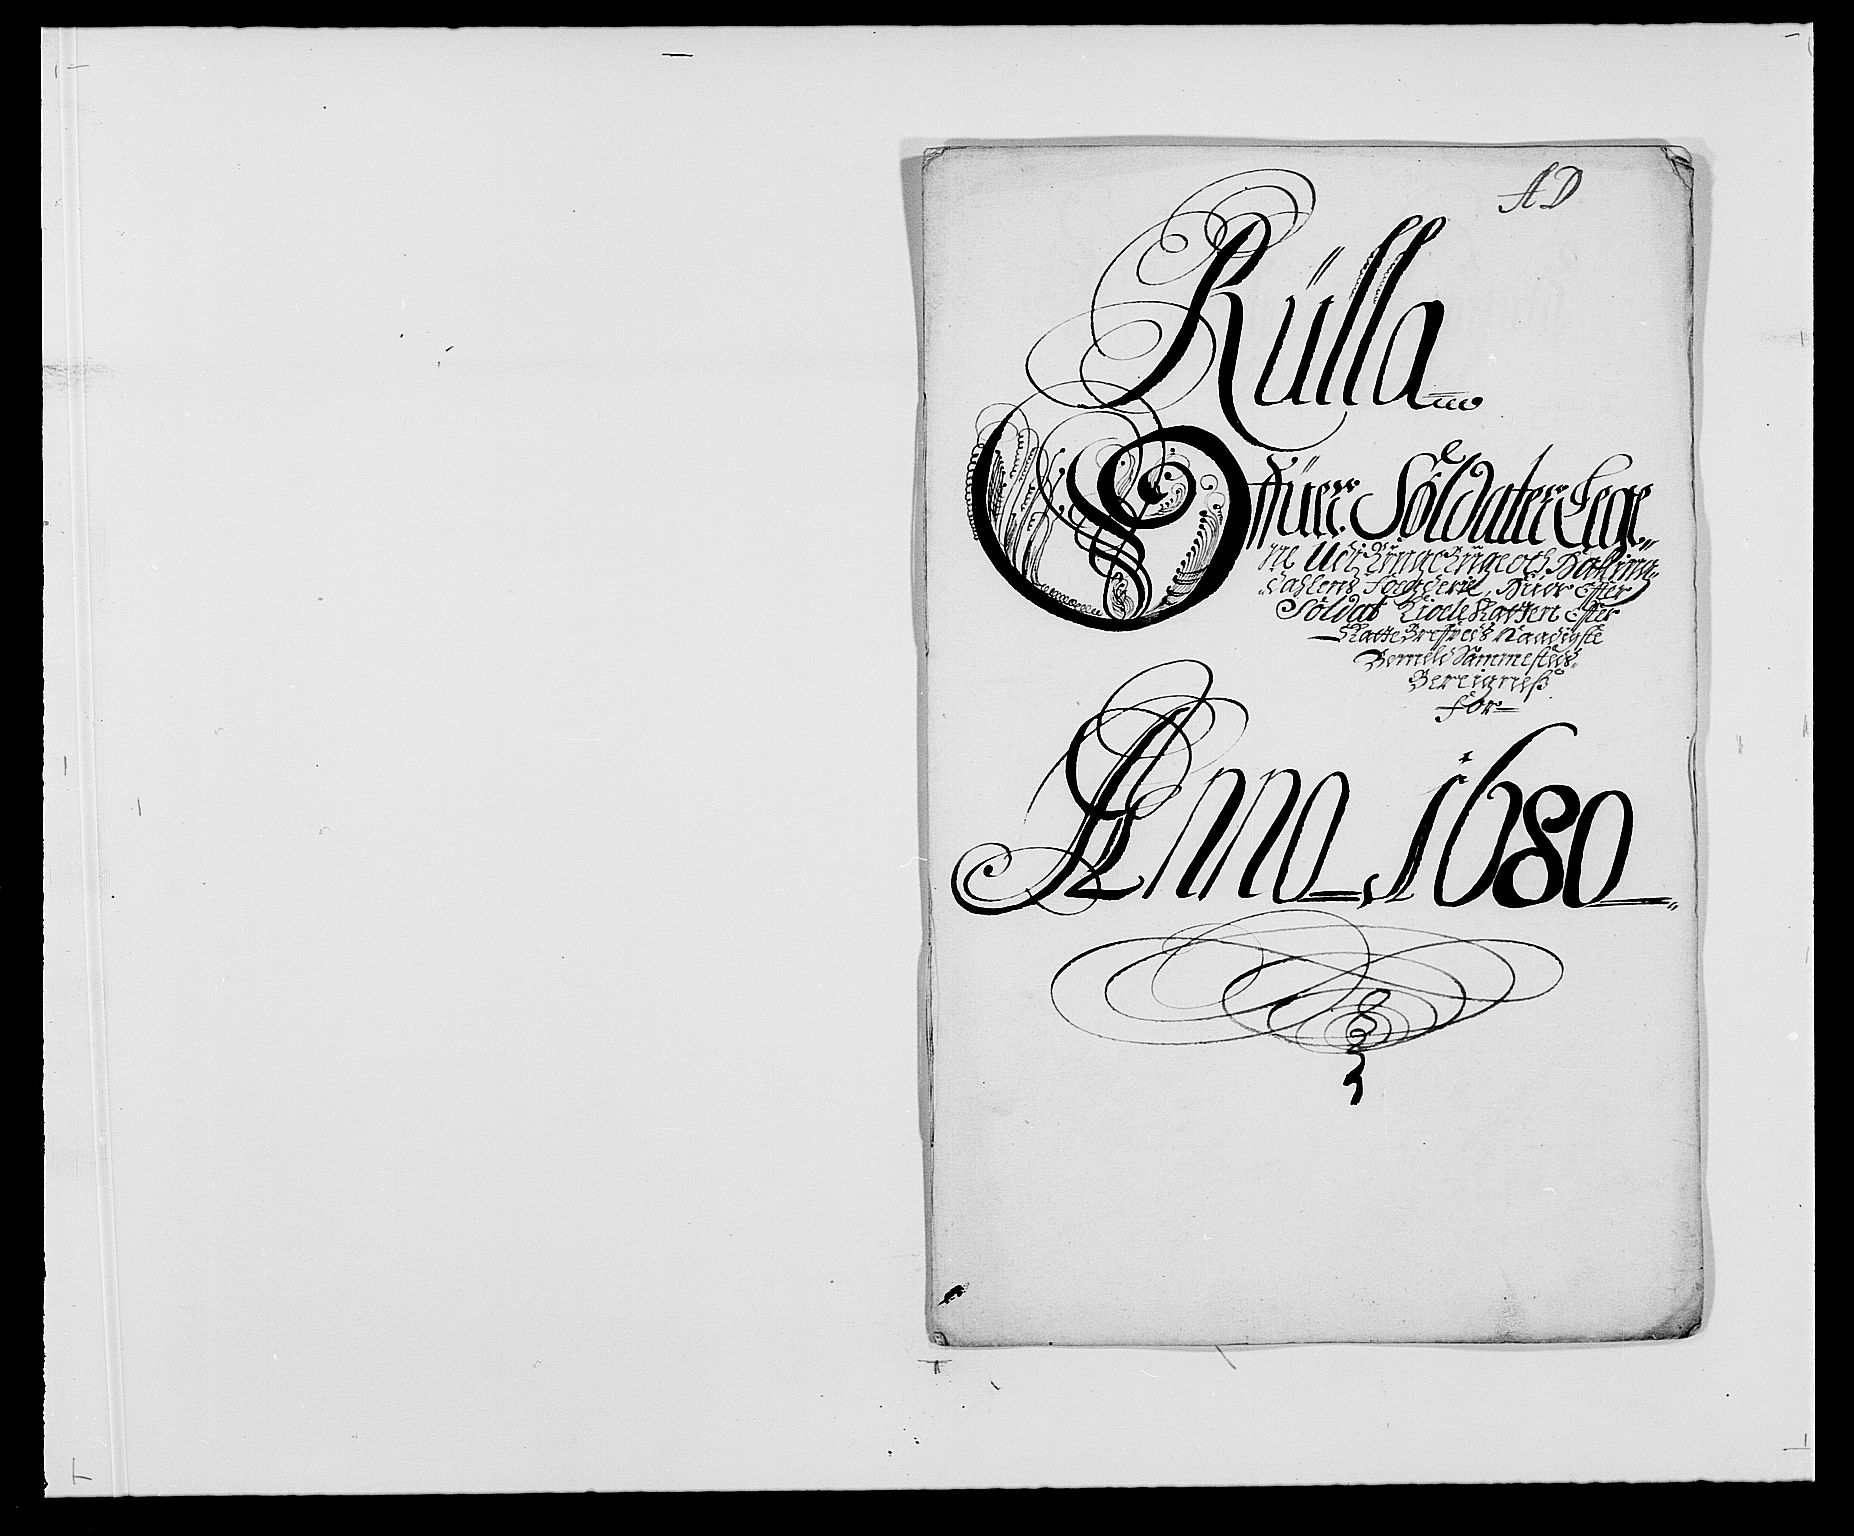 AD
Rülla
Offüer Söldater Lege„
ne Udj Ringerige och Halling„
„dahlens Fogderie, Huor Effter
Söldat Kiole Skatten Effter
Skatte Breffveds Naadigste
Bemeld Sammesteds
Bereignes
for
Anno 1680